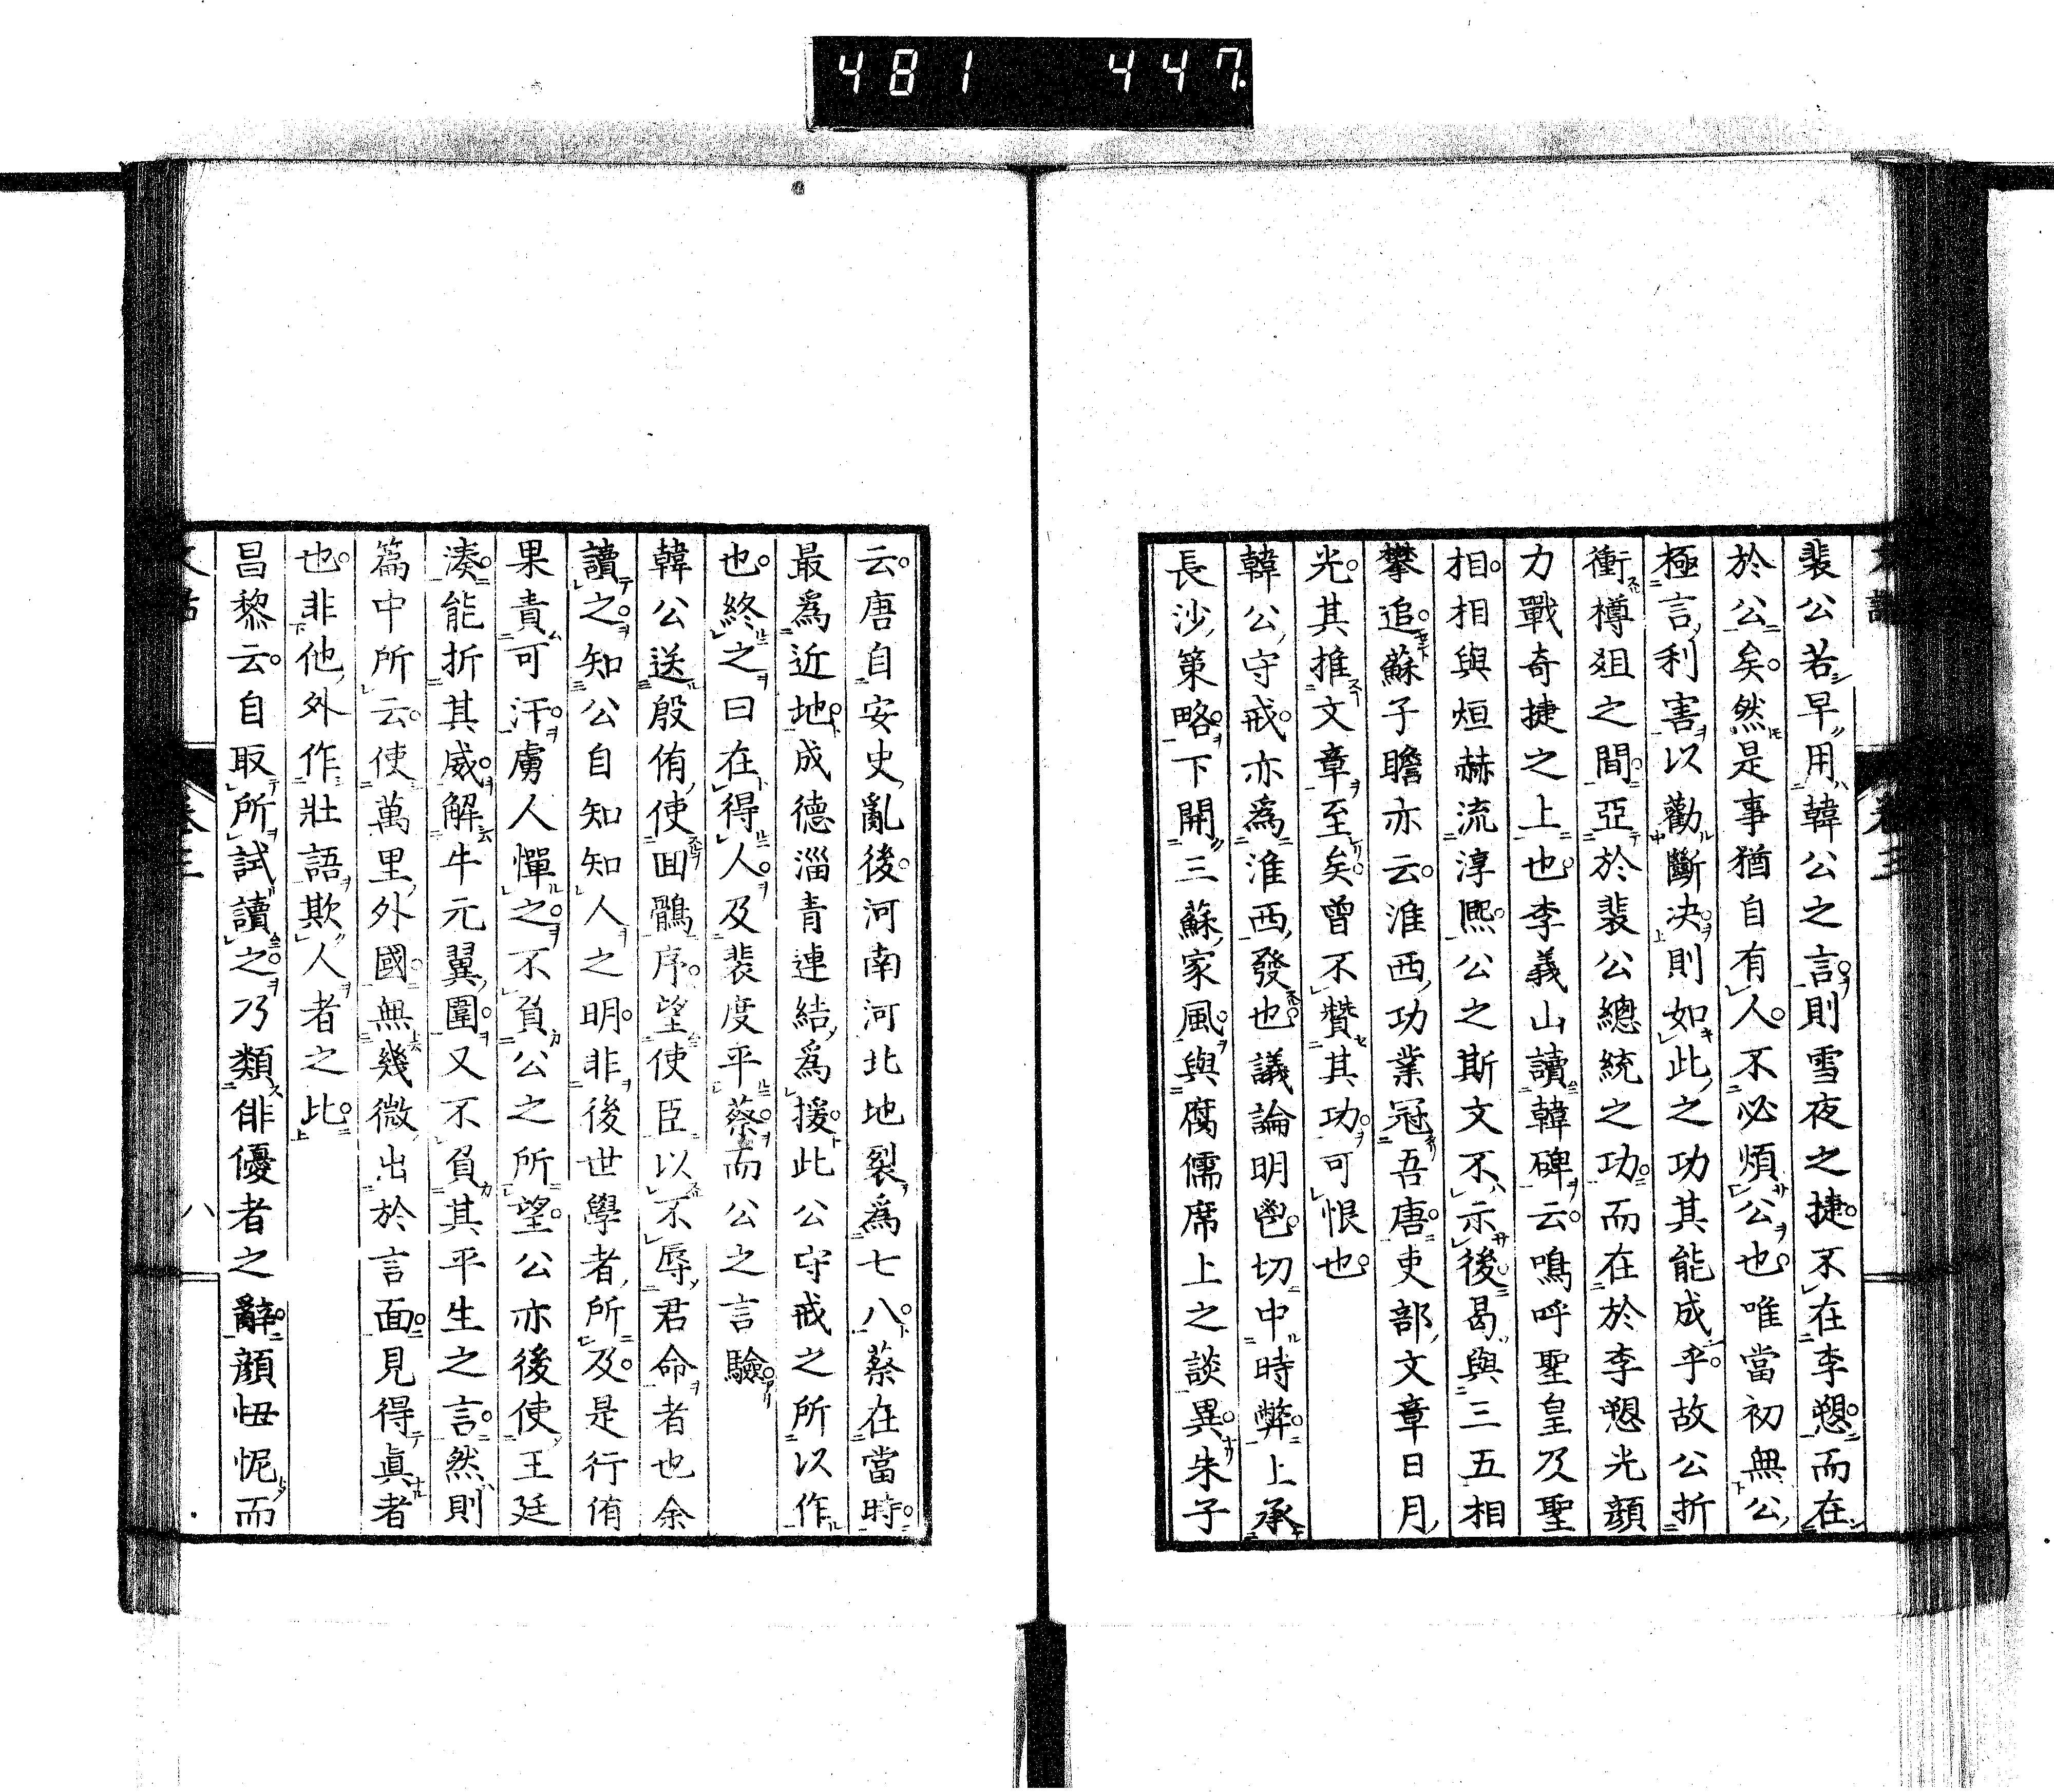 481 447
裴公若早用韓公之言則雪夜之捷不在李愬而在
於公矣然是事猶自有人不必煩公也唯當初無公
極言利害以勸斷决則如此之功其能成乎故公折
衝樽俎之間亞於裴公總統之功而在於李愬光顔
力戰奇捷之上也李義山讀韓碑云嗚呼聖皇及聖
相相與烜赫流淳熙公之斯文不示後曷與三五相
攀追蘇子瞻亦云淮西功業冠吾唐吏部文章日月
光其推文章至矣曾不贊其功可恨也
韓公守戒亦爲淮西發也議論明鬯切中時弊上承
長沙策略下開三蘇家風與腐儒席上之談異朱子
云唐自安史亂後河南河北地裂爲七八蔡在當時
最爲近地成德淄青連結爲援此公守戒之所以作
也終之曰在得人及裴度平蔡而公之言驗
韓公送殷侑使回鶻序望使臣以不辱君命者也余
讀之知公自知知人之明非後世學者所及是行侑
果責可汗虜人憚之不負公之所望公亦後使王廷
湊能折其威解牛元翼圍又不負其平生之言然則
篇中所云使萬里外國無幾微出於言面見得眞者
也非他外作壯語欺人者之此
昌黎云自取所試讀之乃類俳優者之辭顔忸怩而
卷三
八